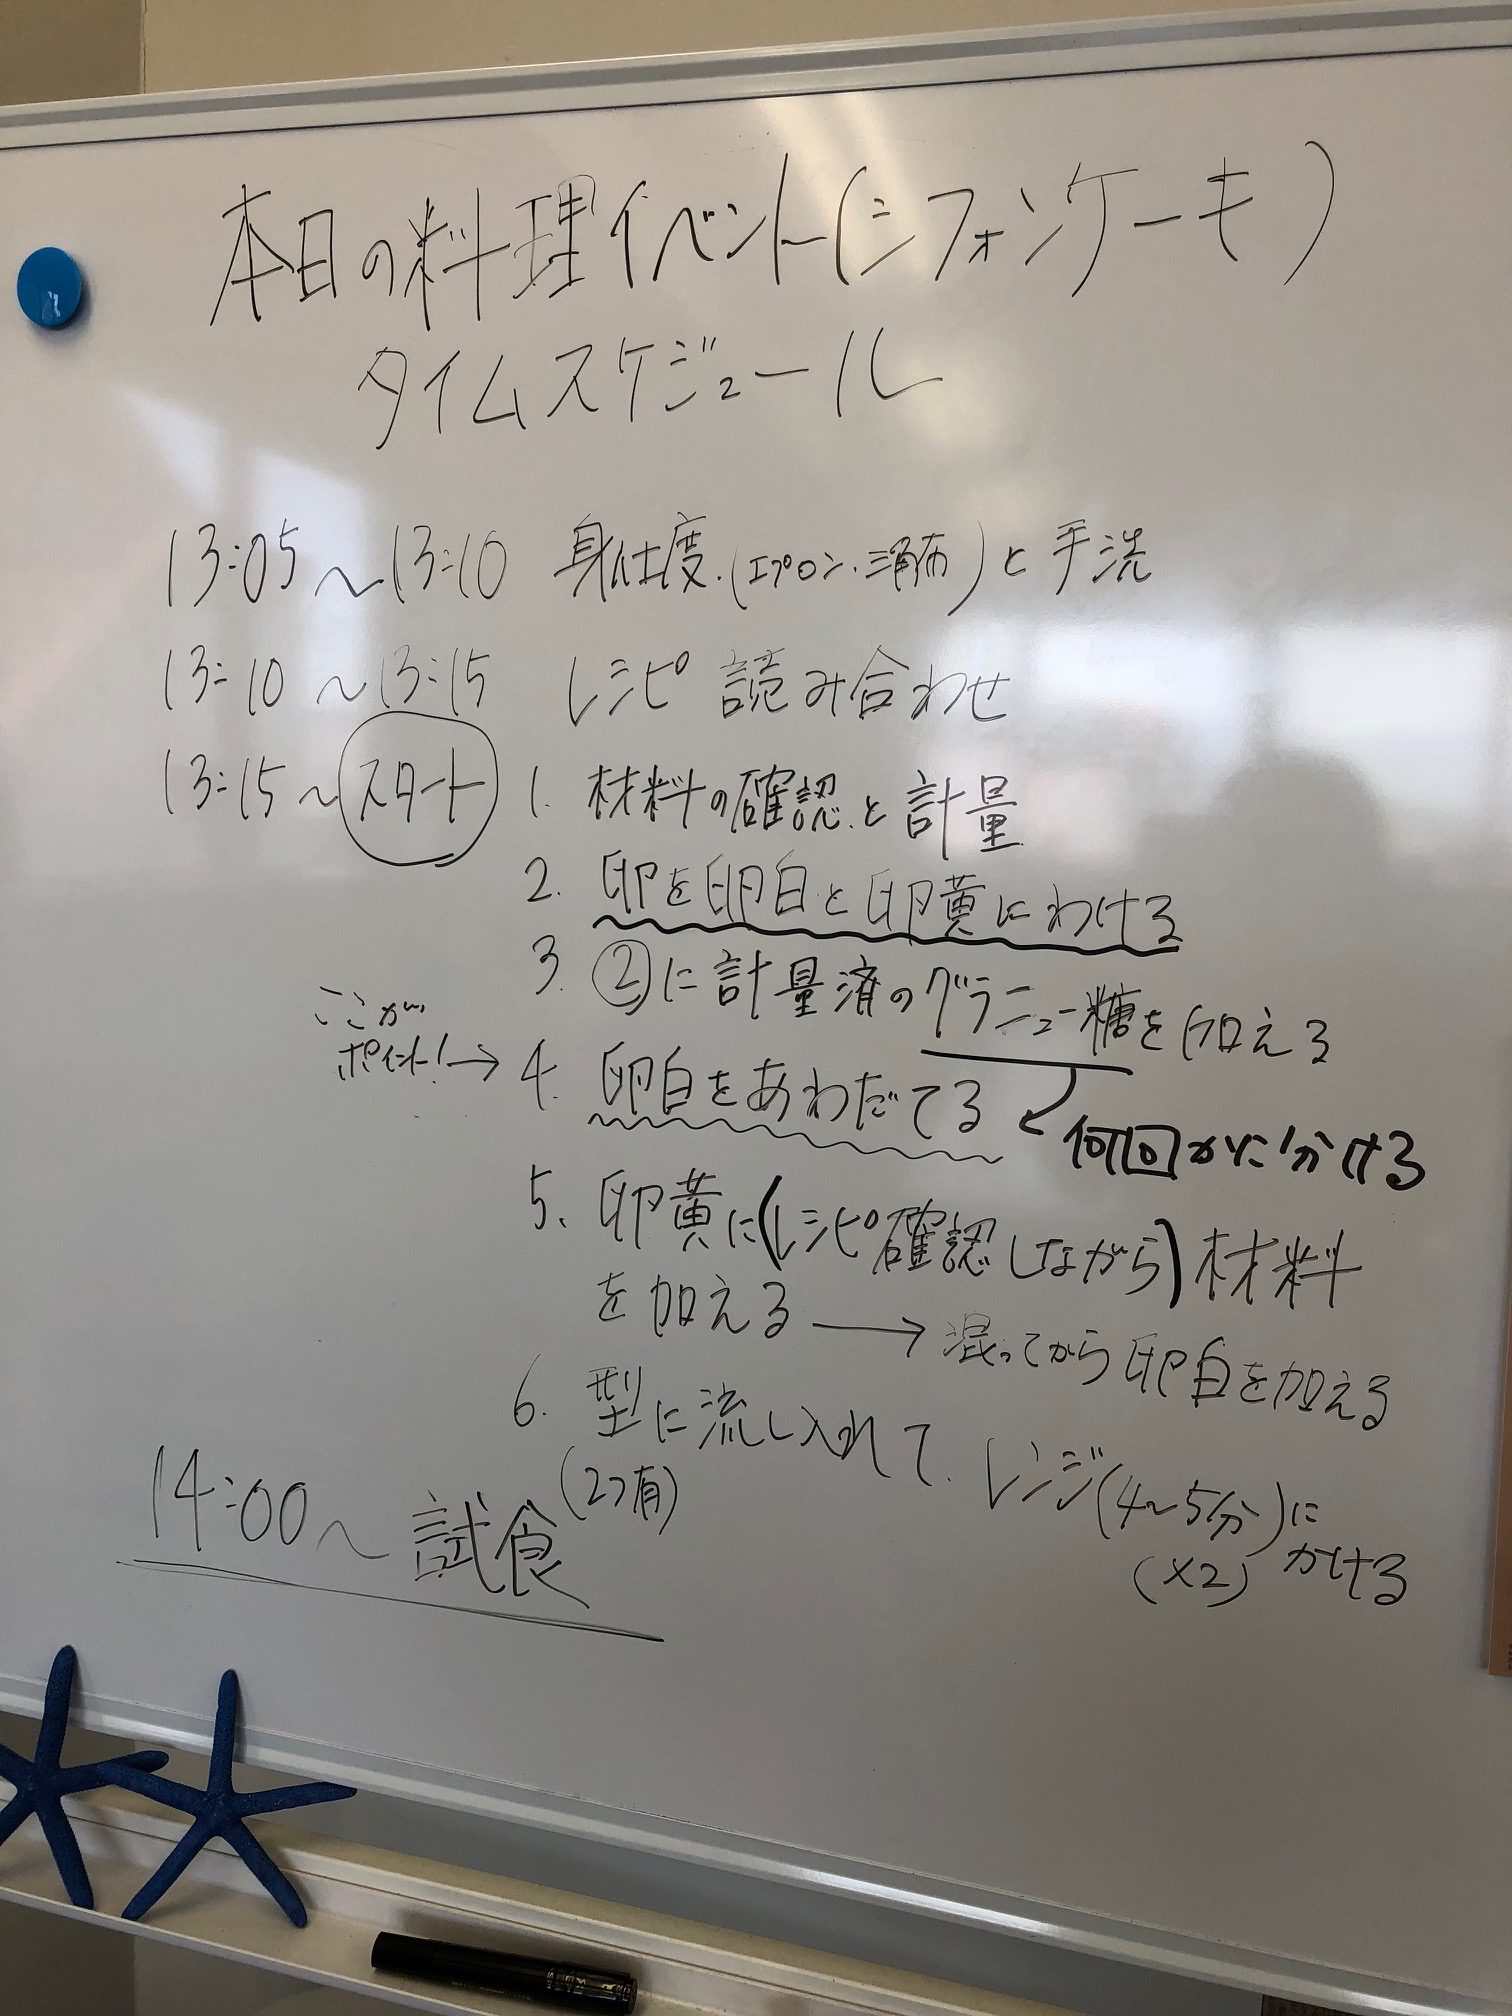 本日の料理イベント(シフォンケーキ)
タイムスケジュール
13:05~13:10 身仕度.(エプロン.三角布)と手洗
13:10~13:15 レシピ 読み合わせ
13:15~スタート 1. 材料の確認.と計量
2. 卵を卵白と卵黄にわける
3. ②に計量済のグラニュー糖を加える
何回かに分ける
ここが
ポイント!→ 4. 卵白をあわだてる
5. 卵黄に(レシピ確認しながら)材料
を加える→混ってから卵白を加える
6. 型に流し入れて. レンジ(4~5分)に
かける
(2つ有)
(×2)
14:00~試食